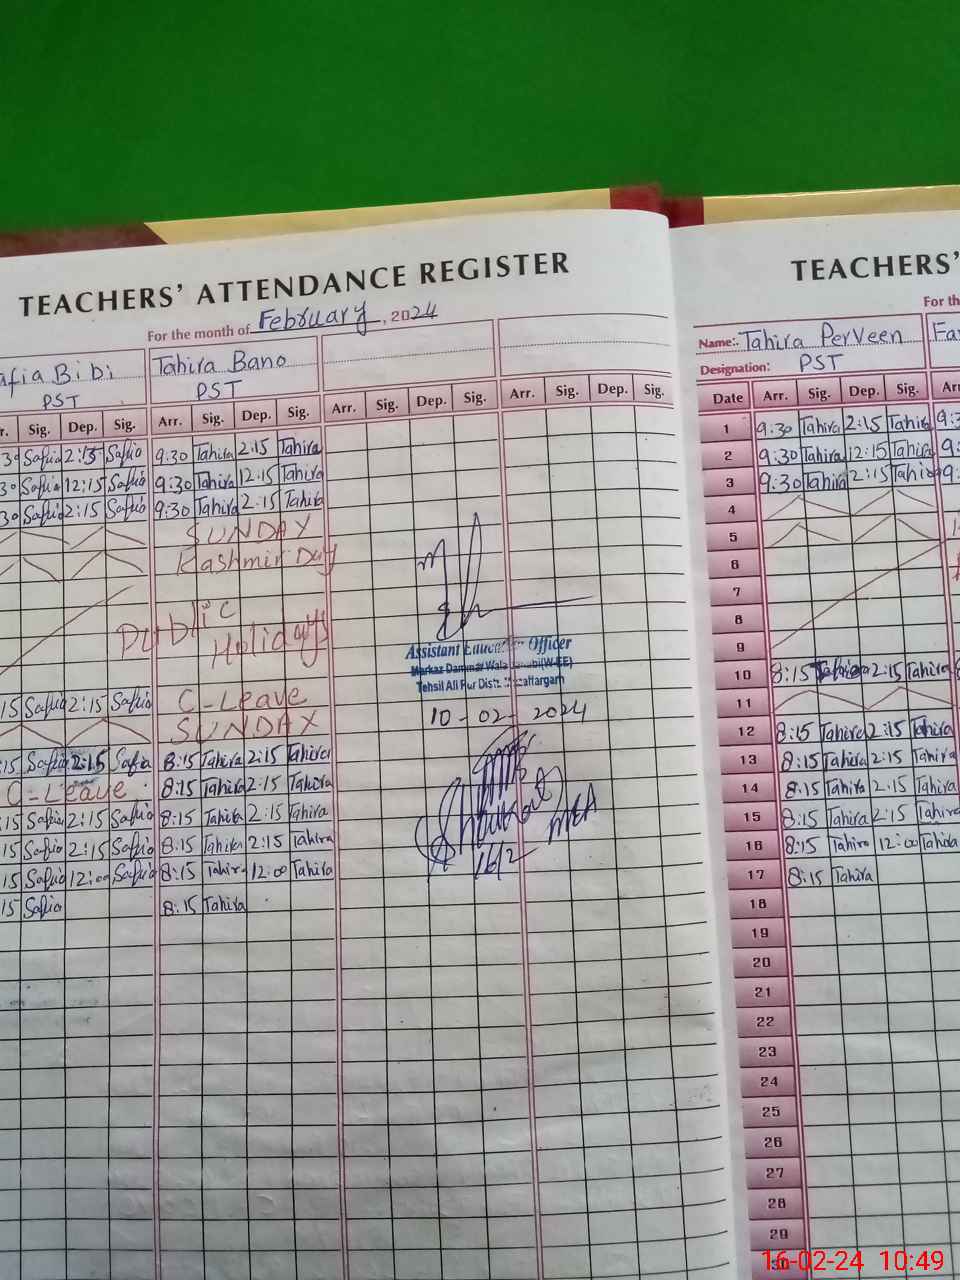 TEACHERS' ATTENDANCE REGISTER
For the month of February, 2024
afia Bibi Tahira Bano
PST PST
r. Sig. Dep. Sig. Arr. Sig. Dep. Sig. Arr. Sig. Dep. Sig. Arr. Sig. Dep. Sig.
30 Safia 2:15 Safia 9:30 Tahira 2:15 Tahira
30 Safia 12:15 Safia 9:30 Tahira 12.15 Tahira
30 Safia 2:15 Safia 9:30 Tahira 2.15 Tahira
SUNDAY
Kashmir Day
Public
Holidays
15 Safia 2:15 Safia C-Leave
SUNDAY
:15 Safia 2:15 Safia 8:15 Tahira 2:15 Tahira
C-Leave 8:15 Tahira 2.15 Tahira
15 Safia 2:15 Safia 8:15 Tahira 2:15 Tahira
15 Safia 2:15 Safia 8:15 Tahira 2:15 Tahira
15 Safia 12:00 Safia 8:15 Tahira 12:00 Tahira
15 Safia 8:15 Tahira
Assistant Education Officer
Markaz Dammar Wala
Tehsil Ali Pur Distt:
10-02-2024
MEA
16/2
TEACHERS'
For th
Name:. Tahira Perveen Fa
Designation: PST
Date Arr. Sig. Dep. Sig. Arr
1 9:30 Tahira 2:15 Tahira 9:3
2 9:30 Tahira 12:15 Tahira 9:
3 9:30 Tahira 2:15 Tahira 9:
4
5
6
7
8
9
10 8:15 Tahira 2:15 Tahira
11
12 8:15 Tahira 2:15 Tahira
13 8:15 Tahira 2:15 Tahira
14 8:15 Tahira 2.15 Tahira
15 8:15 Tahira 2:15 Tahira
16 8:15 Tahira 12:00 Tahira
17 8:15 Tahira
18
19
20
21
22
23
24
25
26
27
28
29
30
16-02-24 10:49